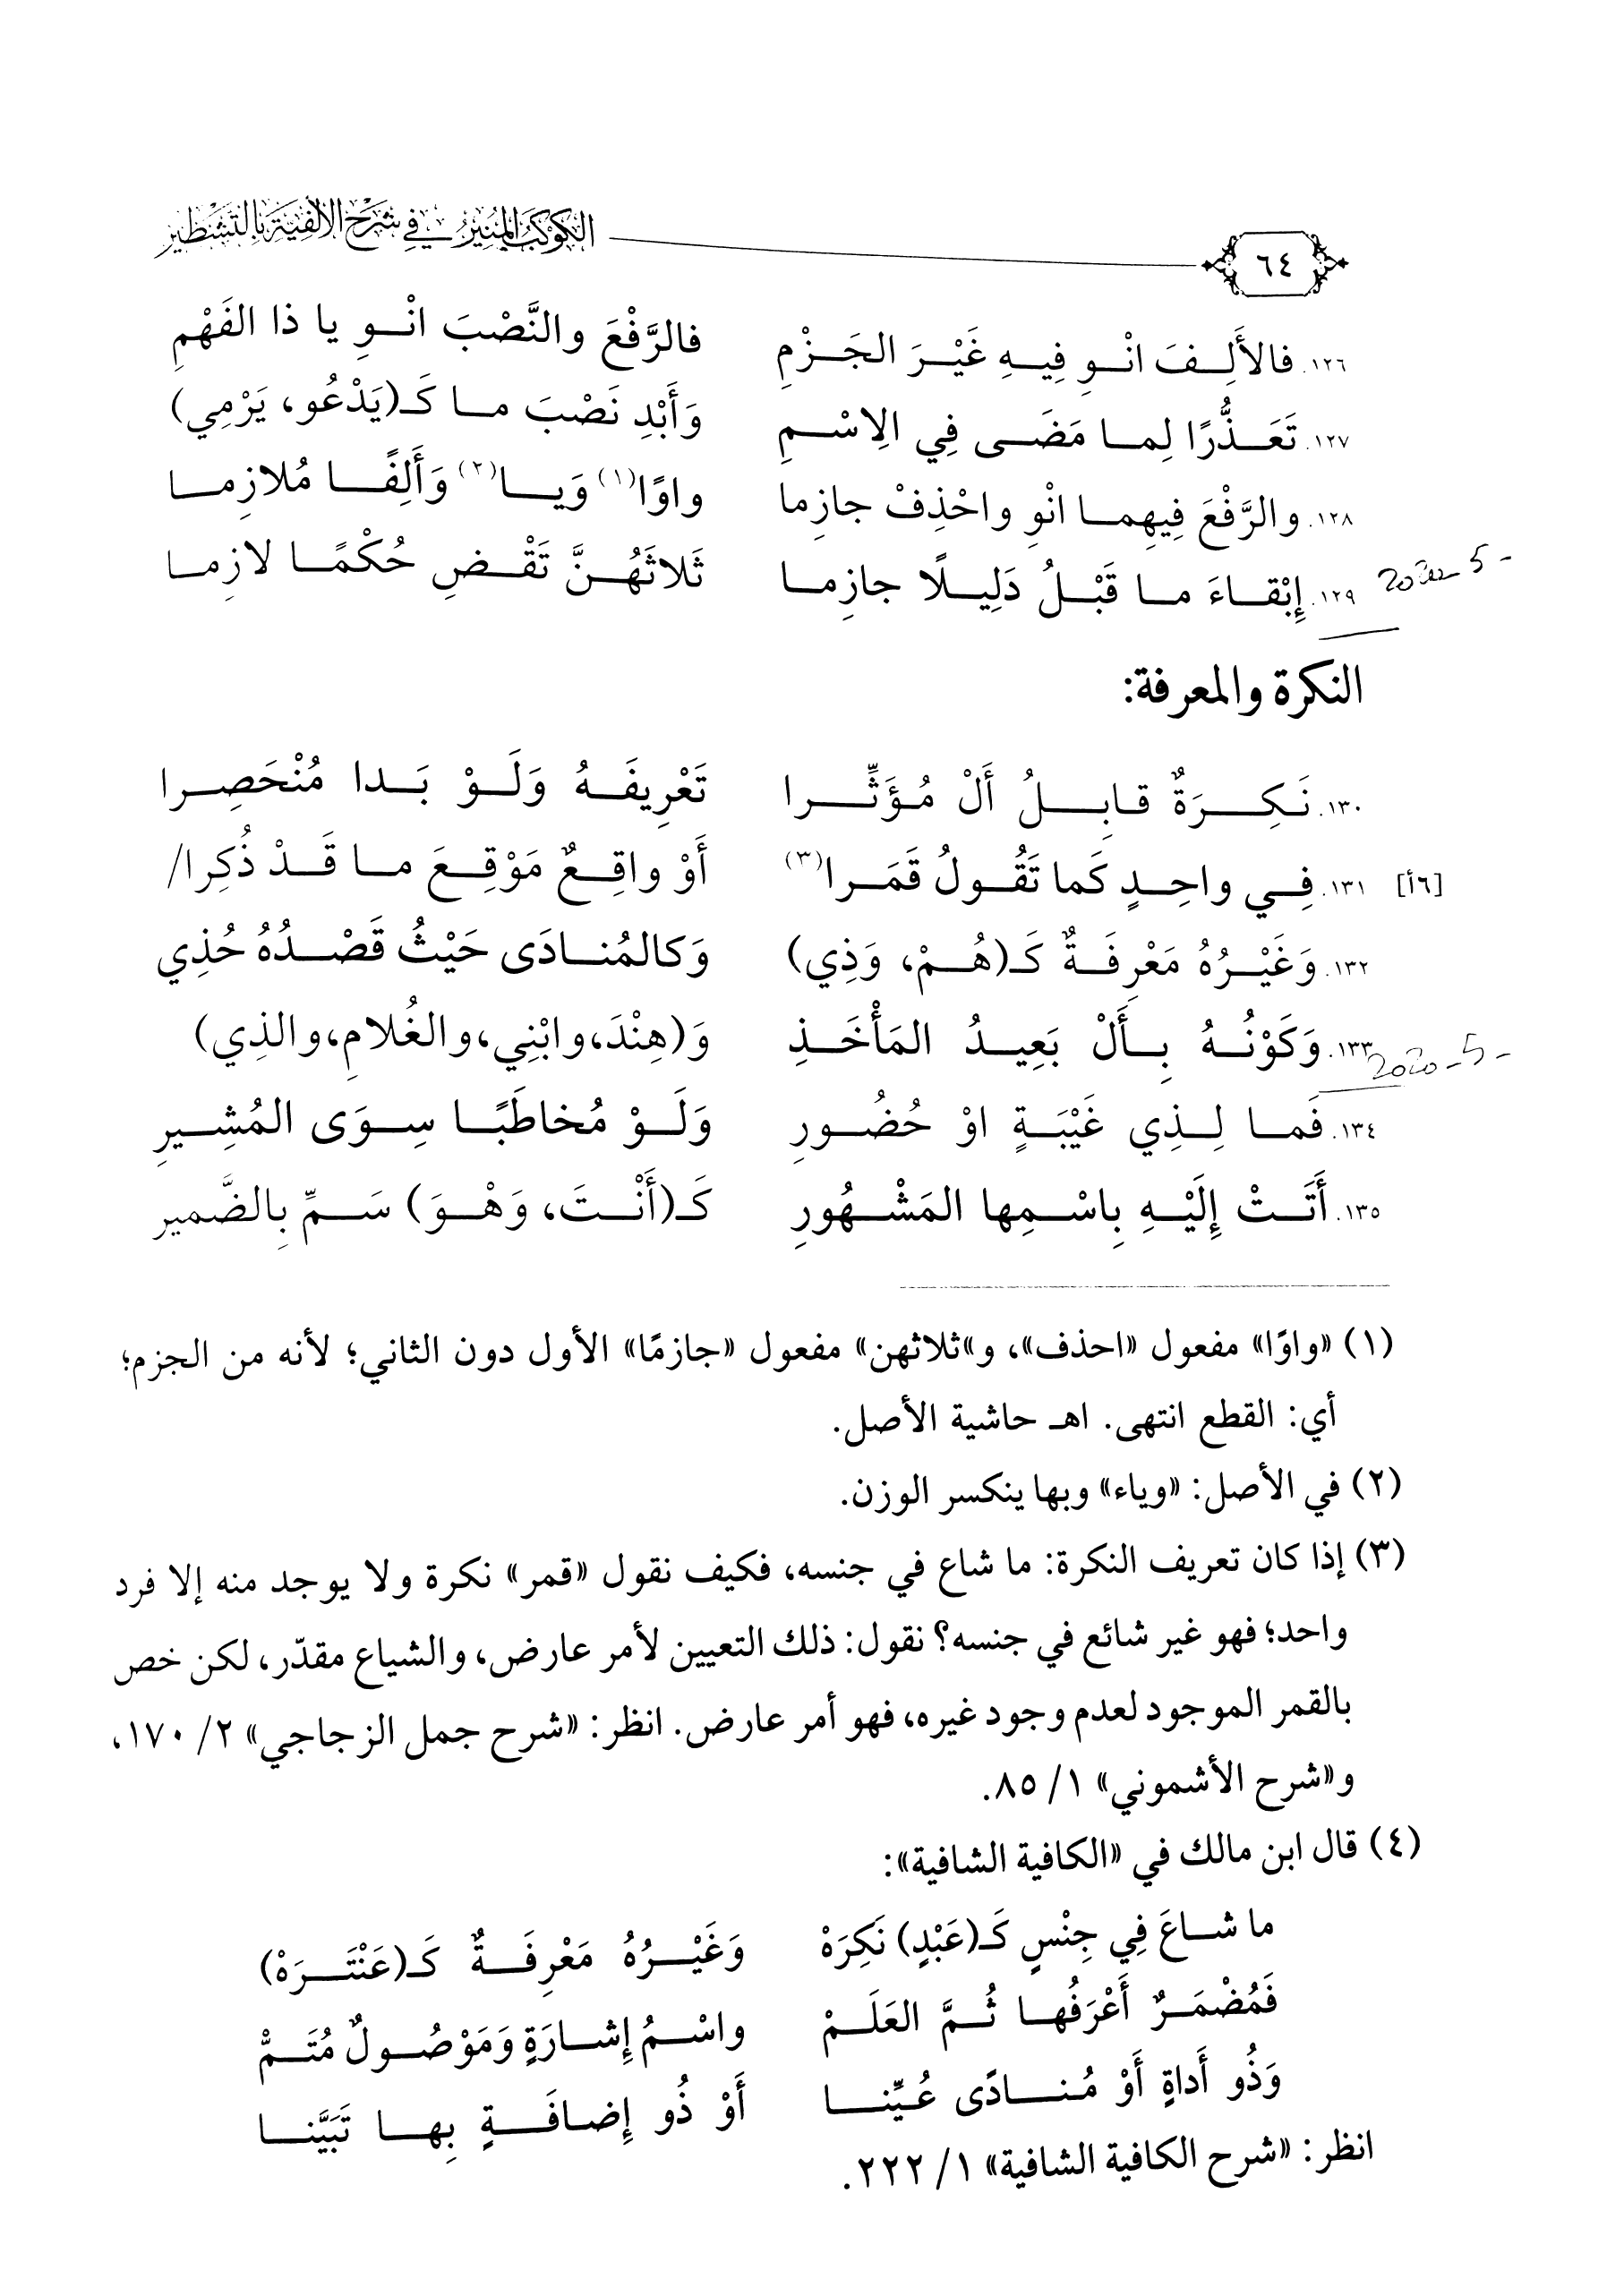 ٦٤ الكَوْكَبُ المُنِيرُ فِي شَرْحِ الأَلْفِيَّةِ بِالتَّشْطِيرِ
١٢٦. فالأَلِفَ انْوِ فِيهِ غَيْرَ الجَزْمِ فالرَّفْعَ والنَّصْبَ انْوِ يا ذا الفَهْمِ
١٢٧. تَعَذُّرًا لِما مَضَى فِي الِاسْمِ وَأَبْدِ نَصْبَ ما كَـ(يَدْعُو، يَرْمِي)
١٢٨. والرَّفْعَ فِيهِما انْوِ واحْذِفْ جازِما واوًا(١) وَيا(٢) وَأَلِفًا مُلازِما
١٢٩. إِبْقاءَ ما قَبْلُ دَلِيلًا جازِما ثَلاثَهُنَّ تَقْضِ حُكْمًا لازِما
النكرة والمعرفة:
١٣٠. نَكِرَةٌ قابِلُ أَلْ مُؤَثِّرا تَعْرِيفَهُ وَلَوْ بَدا مُنْحَصِرا
[٦أ] ١٣١. فِي واحِدٍ كَما تَقُولُ قَمَرا(٣) أَوْ واقِعٌ مَوْقِعَ ما قَدْ ذُكِرا/
١٣٢. وَغَيْرُهُ مَعْرِفَةٌ كَـ(هُمْ، وَذِي) وَكالمُنادَى حَيْثُ قَصْدُهُ حُذِي
١٣٣. وَكَوْنُهُ بِأَلْ بَعِيدُ المَأْخَذِ وَ(هِنْدَ، وابْنِي، والغُلامِ، والذِي)
2020-5-
١٣٤. فَما لِذِي غَيْبَةٍ اوْ حُضُورِ وَلَوْ مُخاطَبًا سِوَى المُشِيرِ
١٣٥. أَتَتْ إِلَيْهِ بِاسْمِها المَشْهُورِ كَـ(أَنْتَ، وَهْوَ) سَمِّ بِالضَّمير
(١) «واوًا» مفعول «احذف»، و«ثلاثهن» مفعول «جازمًا» الأول دون الثاني؛ لأنه من الجزم؛
أي: القطع انتهى. اهـ حاشية الأصل.
(٢) في الأصل: «وياء» وبها ينكسر الوزن.
(٣) إذا كان تعريف النكرة: ما شاع في جنسه، فكيف نقول «قمر» نكرة ولا يوجد منه إلا فرد
واحد؛ فهو غير شائع في جنسه؟ نقول: ذلك التعيين لأمر عارض، والشياع مقدّر، لكن خص
بالقمر الموجود لعدم وجود غيره، فهو أمر عارض. انظر: «شرح جمل الزجاجي» ٢/ ١٧٠،
و«شرح الأشموني» ١/ ٨٥.
(٤) قال ابن مالك في «الكافية الشافية»:
ما شاعَ فِي جِنْسٍ كَـ(عَبْدٍ) نَكِرَهْ وَغَيْرُهُ مَعْرِفَةٌ كَـ(عَنْتَرَهْ)
فَمُضْمَرٌ أَعْرَفُها ثُمَّ العَلَمْ واسْمُ إِشارَةٍ وَمَوْصُولٌ مُتَمّْ
وَذُو أَداةٍ أَوْ مُنادًى عُيِّنا أَوْ ذُو إِضافَةٍ بِها تَبَيَّنا
انظر: «شرح الكافية الشافية» ١/ ٢٢٢.